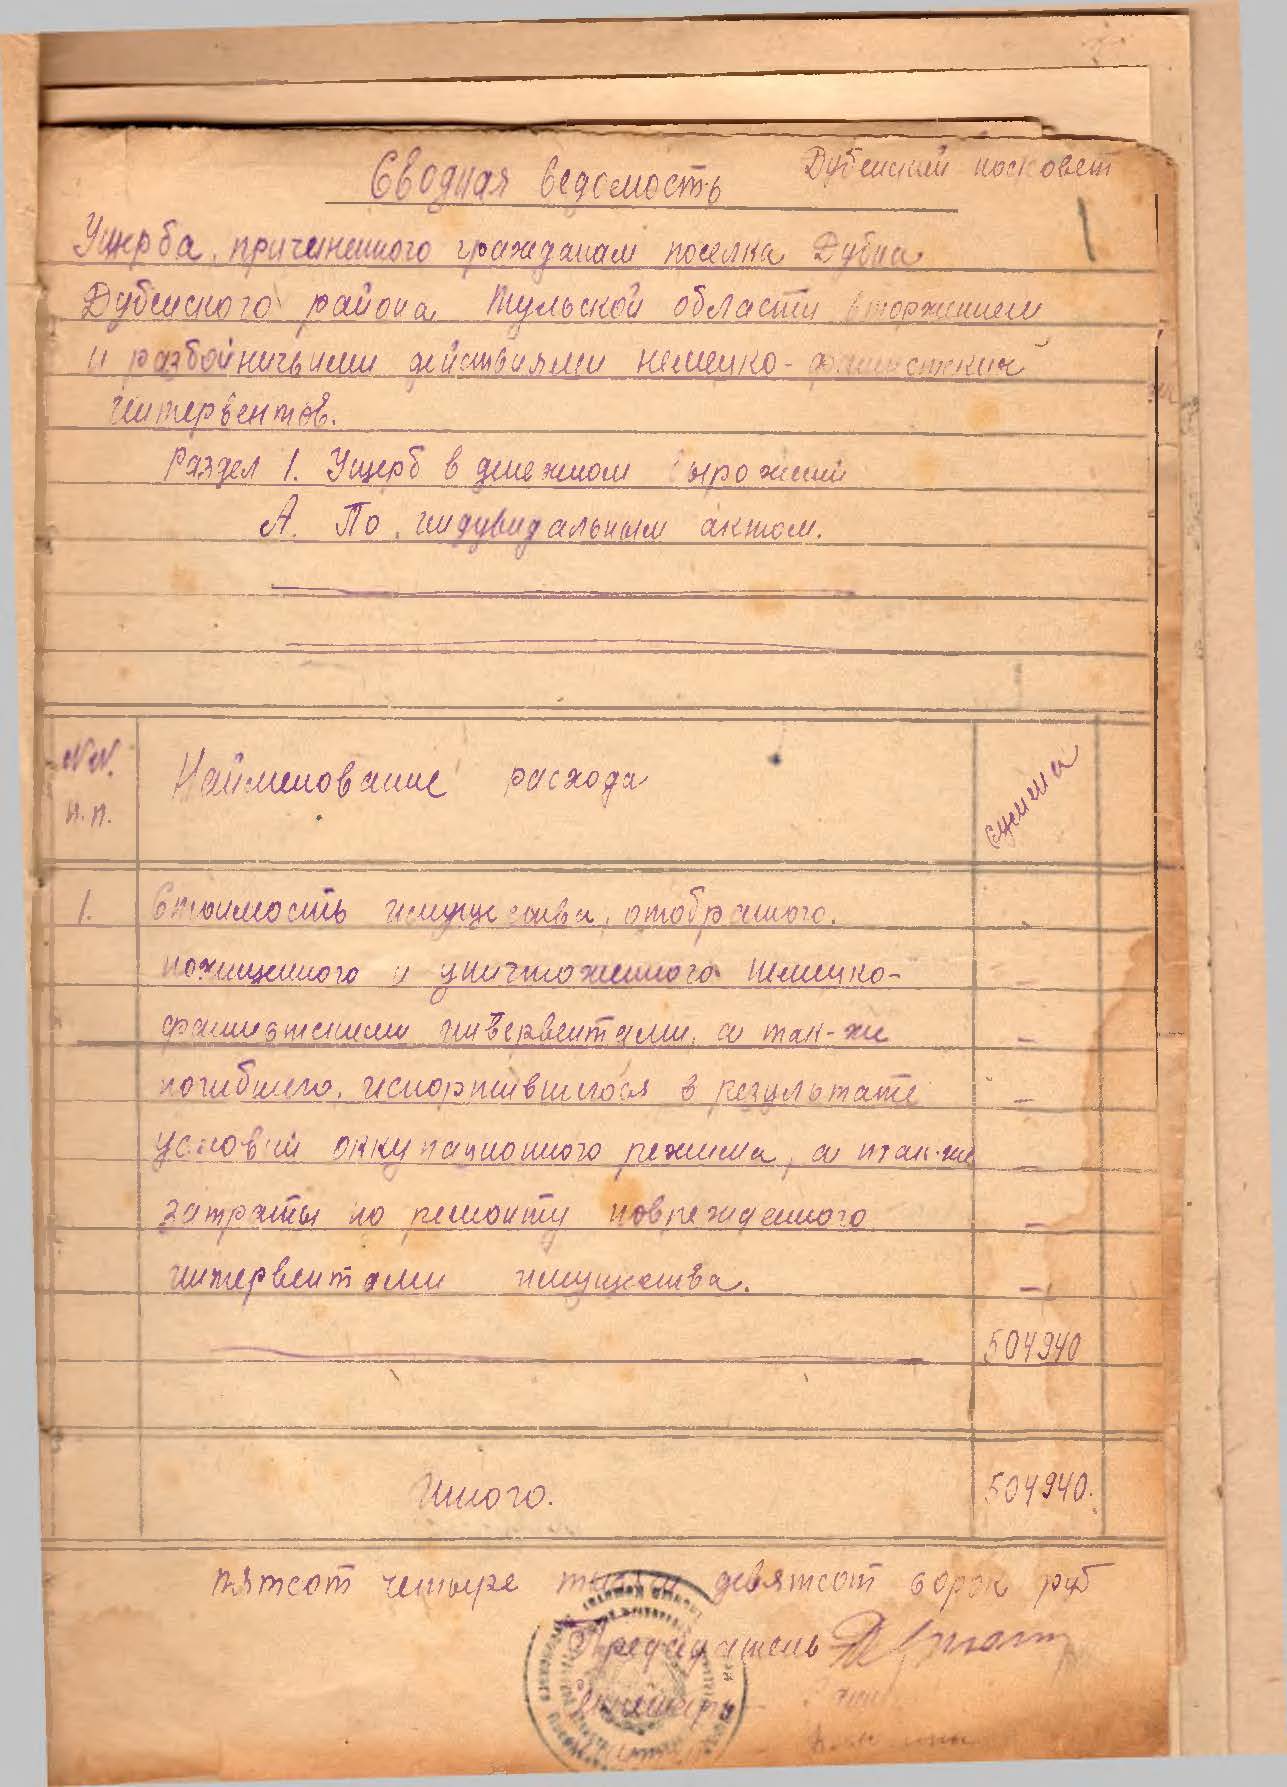 Дубенский поссовет
Сводная ведомость
1
Ущерба, причиненного гражданам поселка Дубна
Дубенского района Тульской области вторжением
и разбойничьими действиями немецко-фашистских
интервентов.
Раздел 1. Ущерб в денежном выражении
А. По индувидальным актом.
№№ п.п.
Наименование расхода
сумма
1. Стоимость имущества, отобранного,
похищенного и уничтоженного немецко-
фашистскими интервентами, а так-же
погибшего, испортившегося в результате
условий оккупационного режима, а так-же
затраты по ремонту поврежденного
интервентами имущества.
504940
Итого. 504940.
пятсот четыре тысячи девятсот сорок руб
Председатель